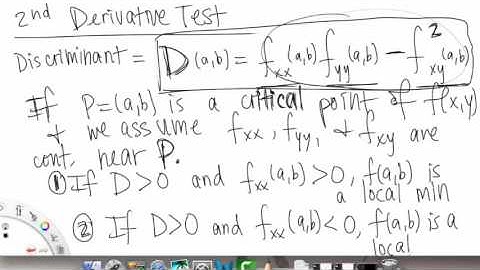 2nd Derivative Test
Discriminant = D(a,b) = f_xx(a,b) f_yy(a,b) − f²_xy(a,b)
If P=(a,b) is a critical point of f(x,y)
+ we assume f_xx, f_yy, + f_xy are
cont. near P.
① If D>0 and f_xx(a,b)>0, f(a,b) is
a local min
② If D>0 and f_xx(a,b)<0, f(a,b) is a
local